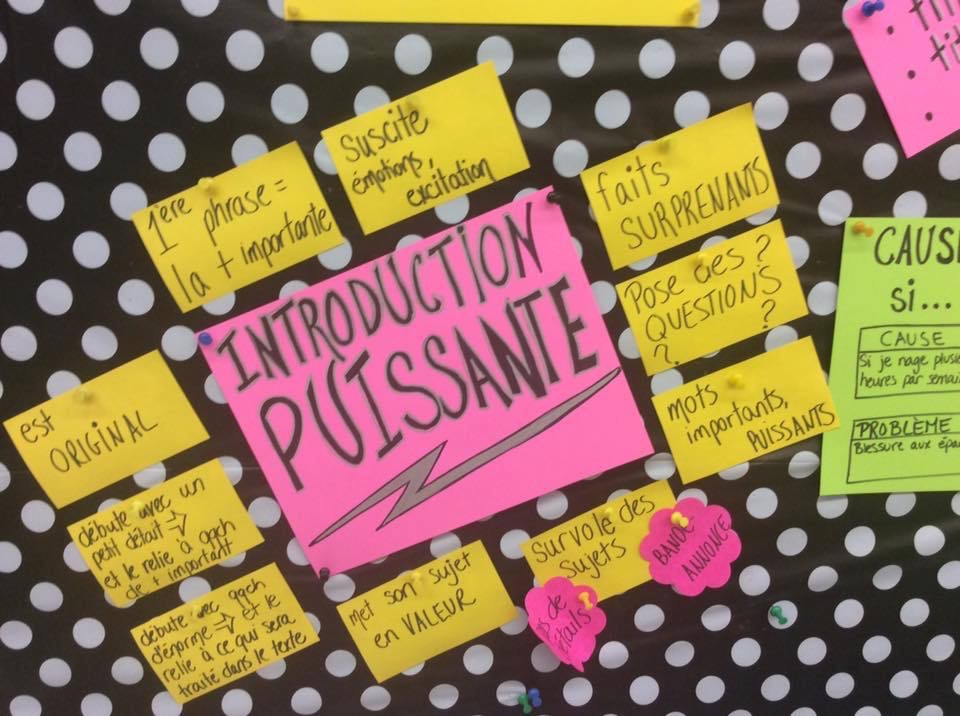 INTRODUCTION
PUISSANTE
1ère
phrase =
la + importante
suscite
émotions,
excitation
faits
SURPRENANTS
Pose des ?
QUESTIONS
? ?
mots
importants,
PUISSANTS
est
ORIGINAL
débute avec un
petit détail =>
et le relie à qqch
de + important
débute avec qqch
d'énorme => et le
relie à ce qui sera
traité dans le texte
met son sujet
en VALEUR
survole des
sujets
BANDE
ANNONCE
ps de
détails
CAUSE
si...
CAUSE
Si je nage plusie
heures par semai
PROBLÈME
Blessure aux épa